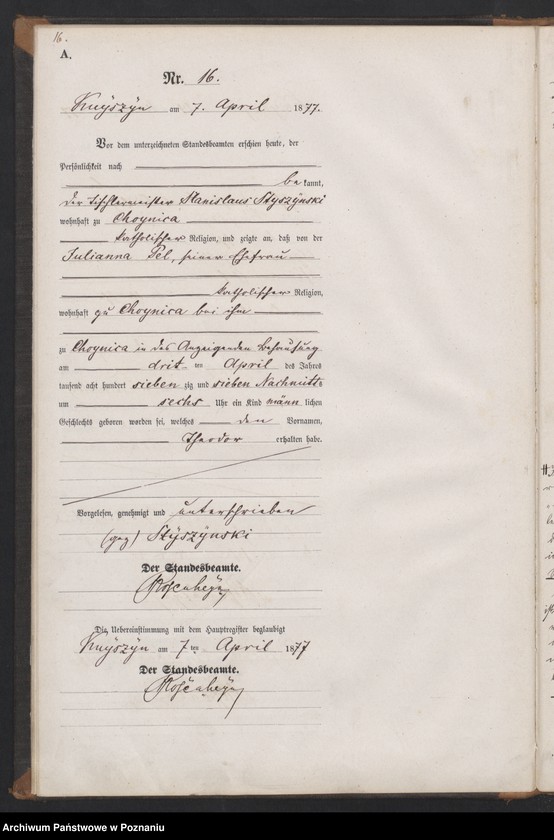 16.
A.
Nr. 16.
Knyszyn am 7. April 1877.
Vor dem unterzeichneten Standesbeamten erschien heute, der
Persönlichkeit nach
bekannt,
der Tischlermeister Stanislaus Styszynski
wohnhaft zu Choynica
katholischer Religion, und zeigte an, daß von der
Julianna Pel, seiner Ehefrau
katholischer Religion,
wohnhaft zu Choynica bei ihm
zu Choynica in des Anzeigenden Behausung
am dritten April des Jahres
tausend acht hundert siebenzig und sieben Nachmittags
um sechs Uhr ein Kind männlichen
Geschlechts geboren worden sei, welches den Vornamen,
Theodor erhalten habe.
Vorgelesen, genehmigt und unterschrieben
(gez) Styszynski
Der Standesbeamte.
Die Uebereinstimmung mit dem Hauptregister beglaubigt
Knyszyn am 7ten April 1877
Der Standesbeamte.
Archiwum Państwowe w Poznaniu